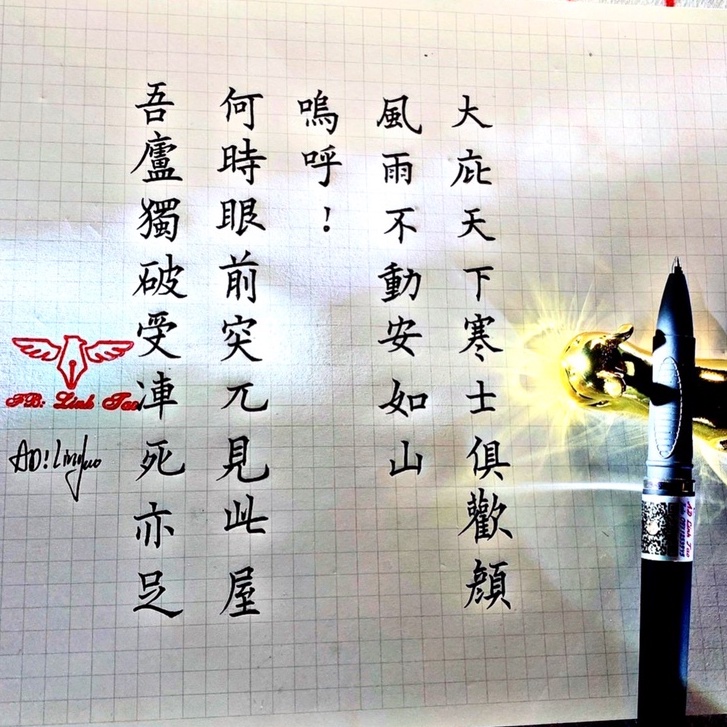 大庇天下寒士俱歡顔
風雨不動安如山
嗚呼！
何時眼前突兀見此屋
吾廬獨破受凍死亦足
FB: Linh Tao